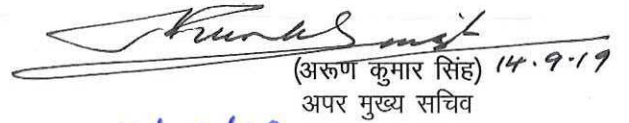 (अरूण कुमार सिंह) 14.9.19
अपर मुख्य सचिव